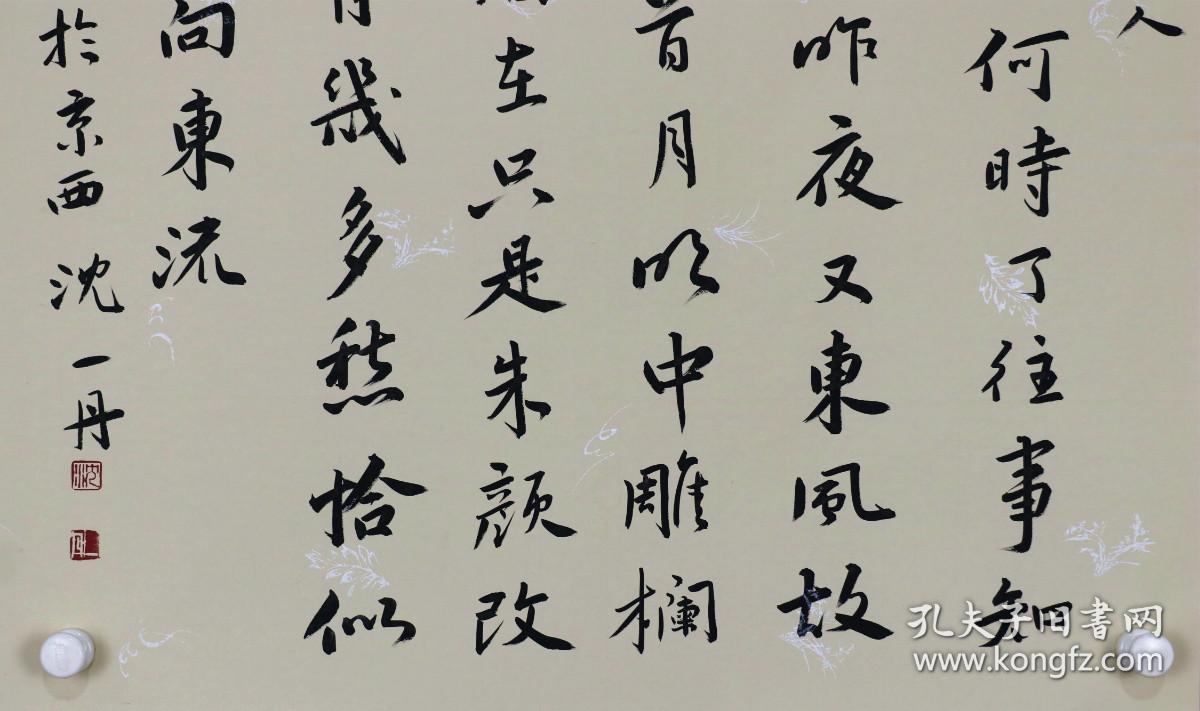 人
何時了往事知
昨夜又東風故
首月明中雕欄
在只是朱顏改
有幾多愁恰似
向東流
於京西沈一丹
沈
孔夫子旧書网
www.kongfz.com